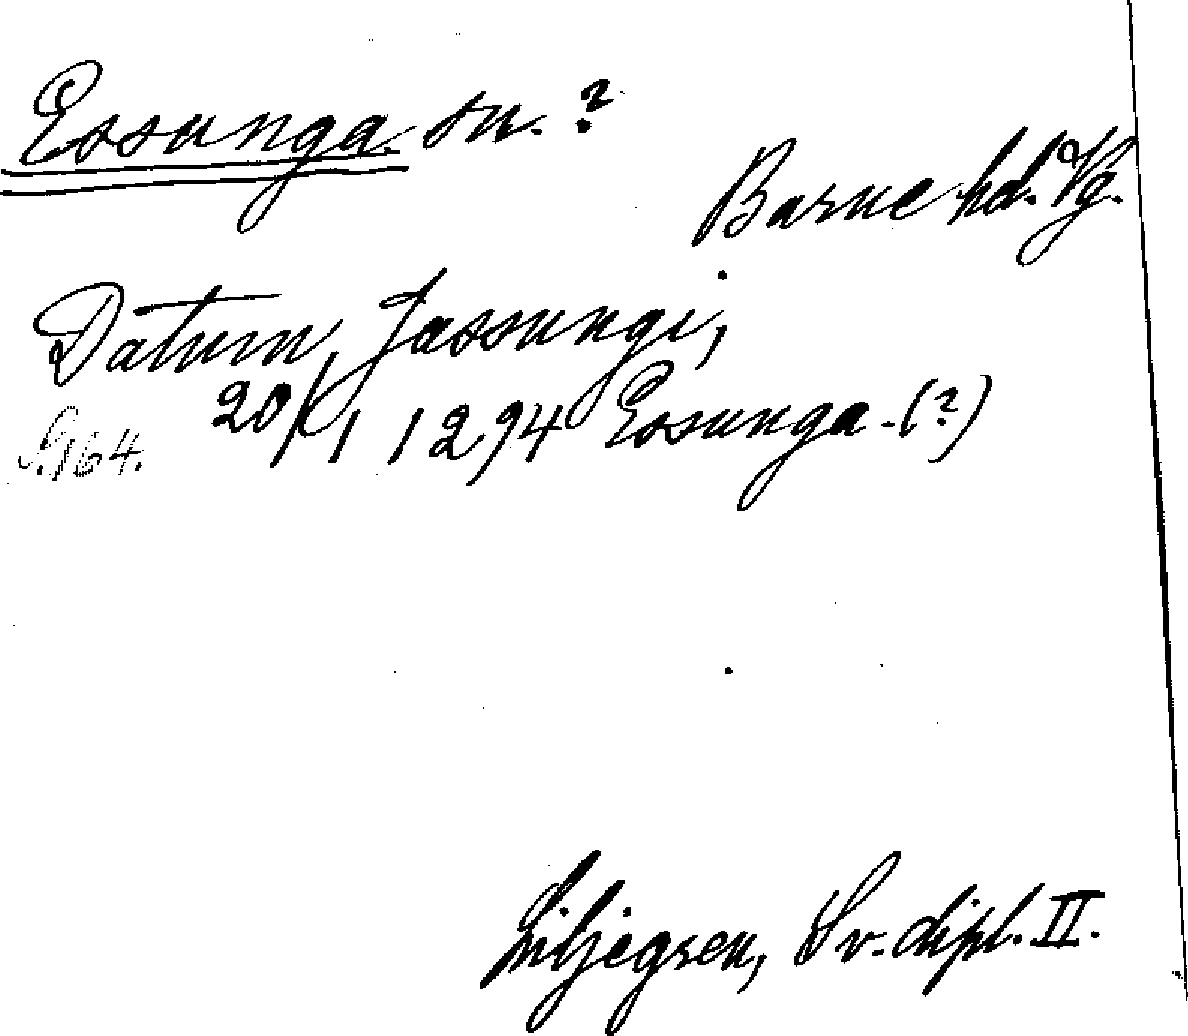 Essunga sn. ?
Barne hd. Vg.
Datum Jassungi,
20/1 1294 Essunga (?)
S. 164.
Liljegren, Sv. dipl. II.